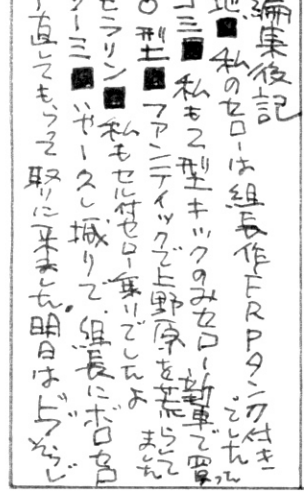 編集後記
地■私のセローは組長作FRPタンク付きでした
コミ■私も2型キックのみセロー新車で買った
〇型■ファンティックで上野原を荒らしてました
セラリン■私もセル付セロー乗りでしたよ
ソーミ■いやー久し振りで、組長にボロセロ
ー直してもらって取りに来ました。明日はどブそらし